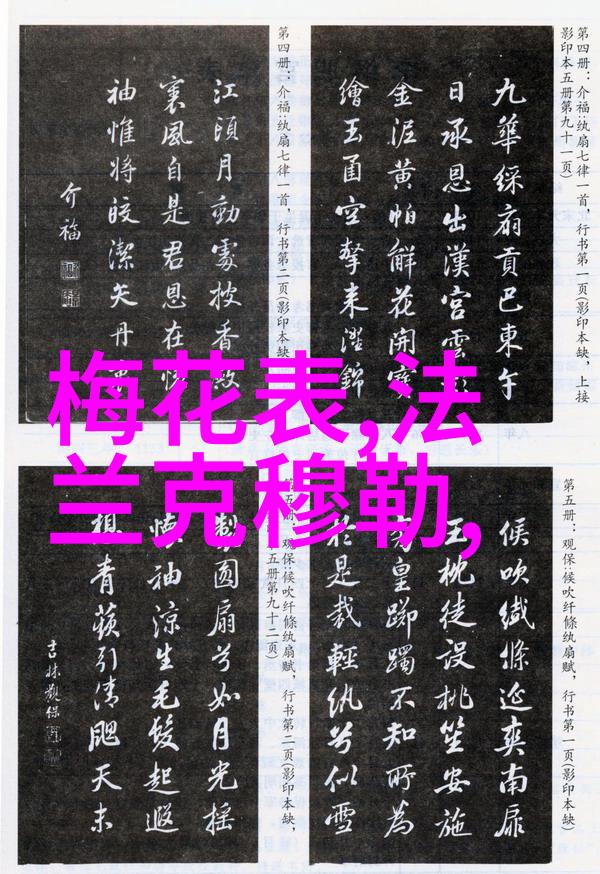 第四册：介福:纨扇七律一首，行书第一页(影印本缺，上接
影印本五册第九十一页)
九華綵扇貢巴東午
日承恩出漢宮雲
金泥黄帕解花開寶
繪玉函空擎来濯錦
第四册：介福:纨扇七律一首，行书第二页(影印本缺)
江頭月動處披香殿
裏風自是君恩在懷
袖惟将皎潔矢丹
介福
梅花表,法
兰克穆勒,
第五册：观保:候吹纤絛纨扇赋，行书第一页(影印本缺)
候吹纎絛延爽南扉
玉枕徒設桃笙安施
方皇躑躅不知所為
於是裁輕紈兮似雪
第五册：观保:候吹纤絛纨扇赋，行书第二页(影印本缺，
五册第九十二页)
製圓扇兮如月光揺
懷袖涼生毛髮起遐
想青蘋引清颸天末
吉林觀保